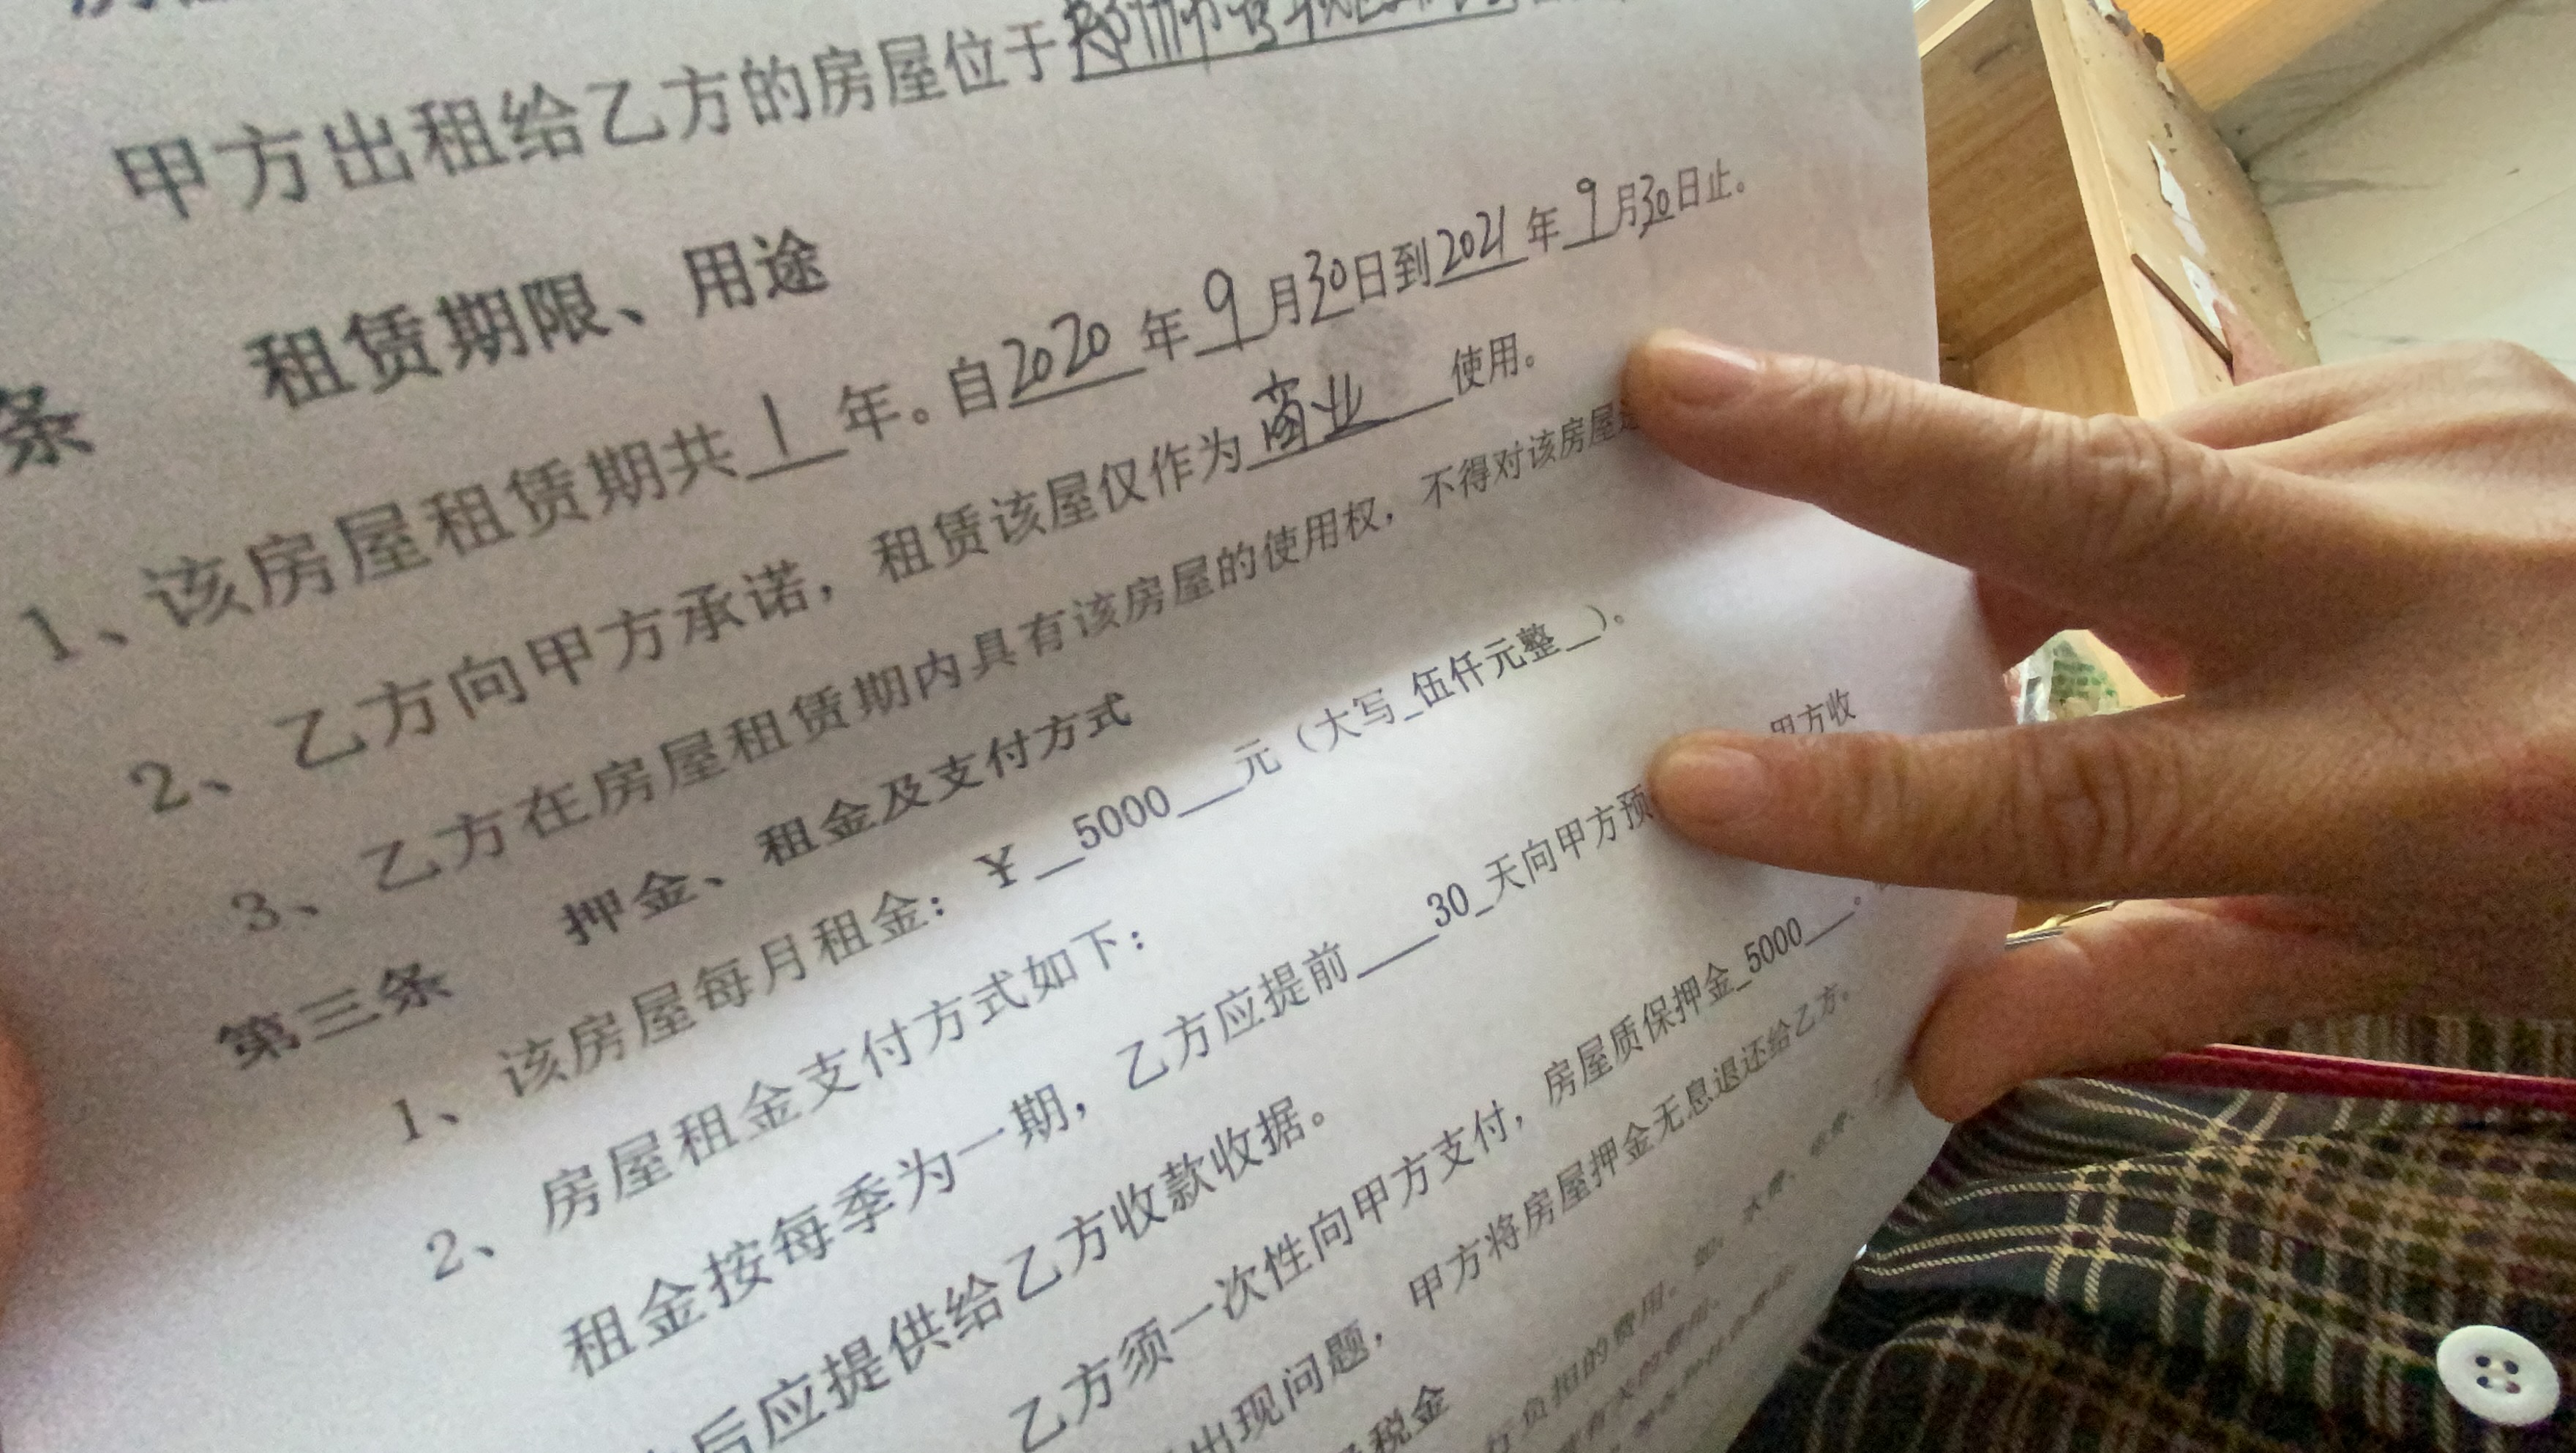 甲方出租给乙方的房屋位于
条 租赁期限、用途
1、该房屋租赁期共 1 年。自2020年9月30日到2021年9月30日止。
2、乙方向甲方承诺，租赁该屋仅作为商业__使用。
3、乙方在房屋租赁期内具有该房屋的使用权，不得对该房屋
第三条 押金、租金及支付方式
1、该房屋每月租金：￥__5000___元（大写_伍仟元整__）。
2、房屋租金支付方式如下：
租金按每季为一期，乙方应提前____30_天向甲方预 甲方收
后应提供给乙方收款收据。
乙方须一次性向甲方支付，房屋质保押金_5000___。
出现问题，甲方将房屋押金无息退还给乙方。
税金
负担的费用。如：水费、